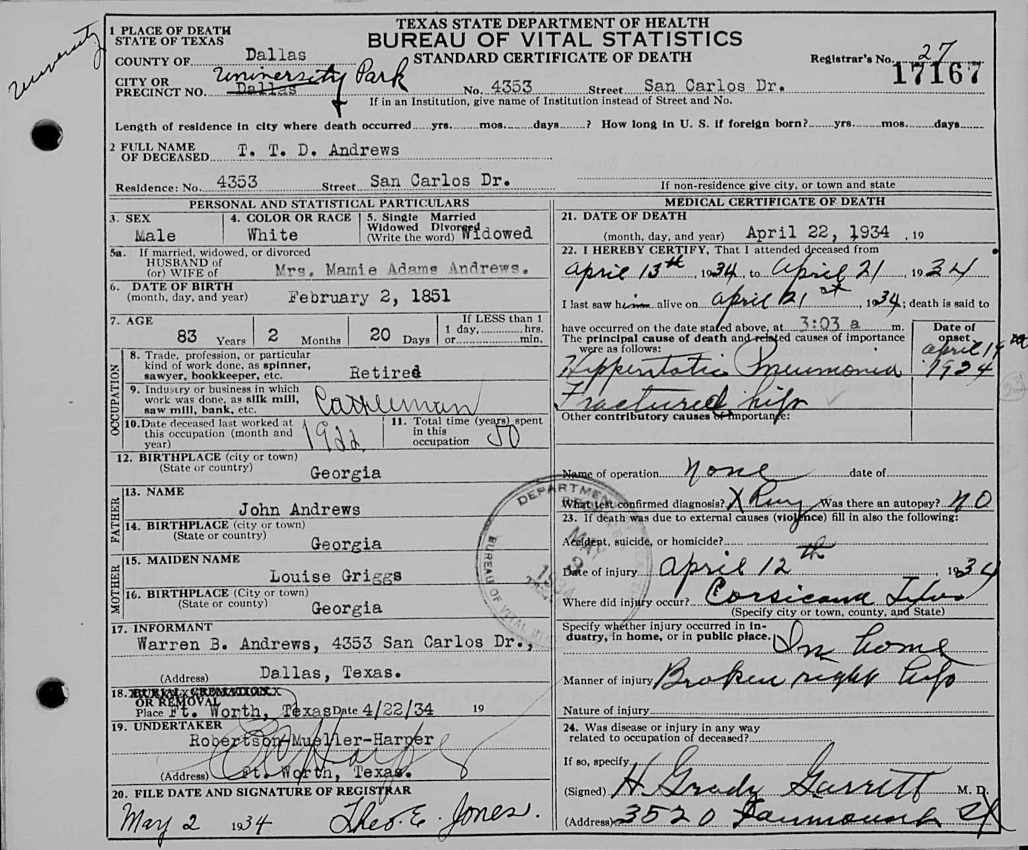 TEXAS STATE DEPARTMENT OF HEALTH
BUREAU OF VITAL STATISTICS
STANDARD CERTIFICATE OF DEATH
University
1 PLACE OF DEATH
STATE OF TEXAS
COUNTY OF Dallas
Registrar's No. 27
17167
University Park
CITY OR
PRECINCT NO. Dallas No. 4353 Street San Carlos Dr.
If in an Institution, give name of Institution instead of Street and No.
Length of residence in city where death occurred yrs. mos. days ? How long in U. S. if foreign born? yrs. mos. days
2 FULL NAME
OF DECEASED T. T. D. Andrews
Residence: No. 4353 Street San Carlos Dr.
If non-residence give city, or town and state
PERSONAL AND STATISTICAL PARTICULARS
3. SEX
Male
4. COLOR OR RACE
White
5. Single Married
Widowed Divorced
(Write the word) Widowed
5a. If married, widowed, or divorced
HUSBAND of
(or) WIFE of Mrs. Mamie Adams Andrews.
6. DATE OF BIRTH
(month, day, and year) February 2, 1851
7. AGE
83 Years 2 Months 20 Days
If LESS than 1
1 day, hrs.
or min.
OCCUPATION
8. Trade, profession, or particular
kind of work done, as spinner,
sawyer, bookkeeper, etc. Retired
9. Industry or business in which
work was done, as silk mill,
saw mill, bank, etc. Cattleman
10. Date deceased last worked at
this occupation (month and
year) 1922
11. Total time (years) spent
in this
occupation 50
12. BIRTHPLACE (city or town)
(State or country) Georgia
FATHER
13. NAME
John Andrews
14. BIRTHPLACE (city or town)
(State or country)
Georgia
MOTHER
15. MAIDEN NAME
Louise Griggs
16. BIRTHPLACE (City or town)
(State or county) Georgia
17. INFORMANT
Warren B. Andrews, 4353 San Carlos Dr.,
(Address) Dallas, Texas.
18. BURIAL CREMATION
OR REMOVAL
Place Ft. Worth, Texas Date 4/22/34 19
19. UNDERTAKER
Robertson-Mueller-Harper
(Address) Ft. Worth, Texas.
20. FILE DATE AND SIGNATURE OF REGISTRAR
May 2 1934 Theo. E. Jones.
MEDICAL CERTIFICATE OF DEATH
21. DATE OF DEATH
(month, day, and year) April 22, 1934 , 19
22. I HEREBY CERTIFY, That I attended deceased from
April 13th, 1934, to April 21, 1934
I last saw him alive on April 21st, 1934; death is said to
have occurred on the date stated above, at 3:03 a m.
The principal cause of death and related causes of importance
were as follows:
Date of
onset
April 19
1934
Hipperstatic Pneumonia
Fractured hip
Other contributory causes of importance:
Name of operation None date of
What test confirmed diagnosis? X Ray Was there an autopsy? No
23. If death was due to external causes (violence) fill in also the following:
Accident, suicide, or homicide?
Date of injury April 12th, 1934
Where did injury occur? Corsicana Texas
(Specify city or town, county, and State)
Specify whether injury occurred in in-
dustry, in home, or in public place. In home
Manner of injury Broken right hip
Nature of injury
24. Was disease or injury in any way
related to occupation of deceased?
If so, specify
(Signed) H Grady Garrett M. D.
(Address) 3520 Fairmount St